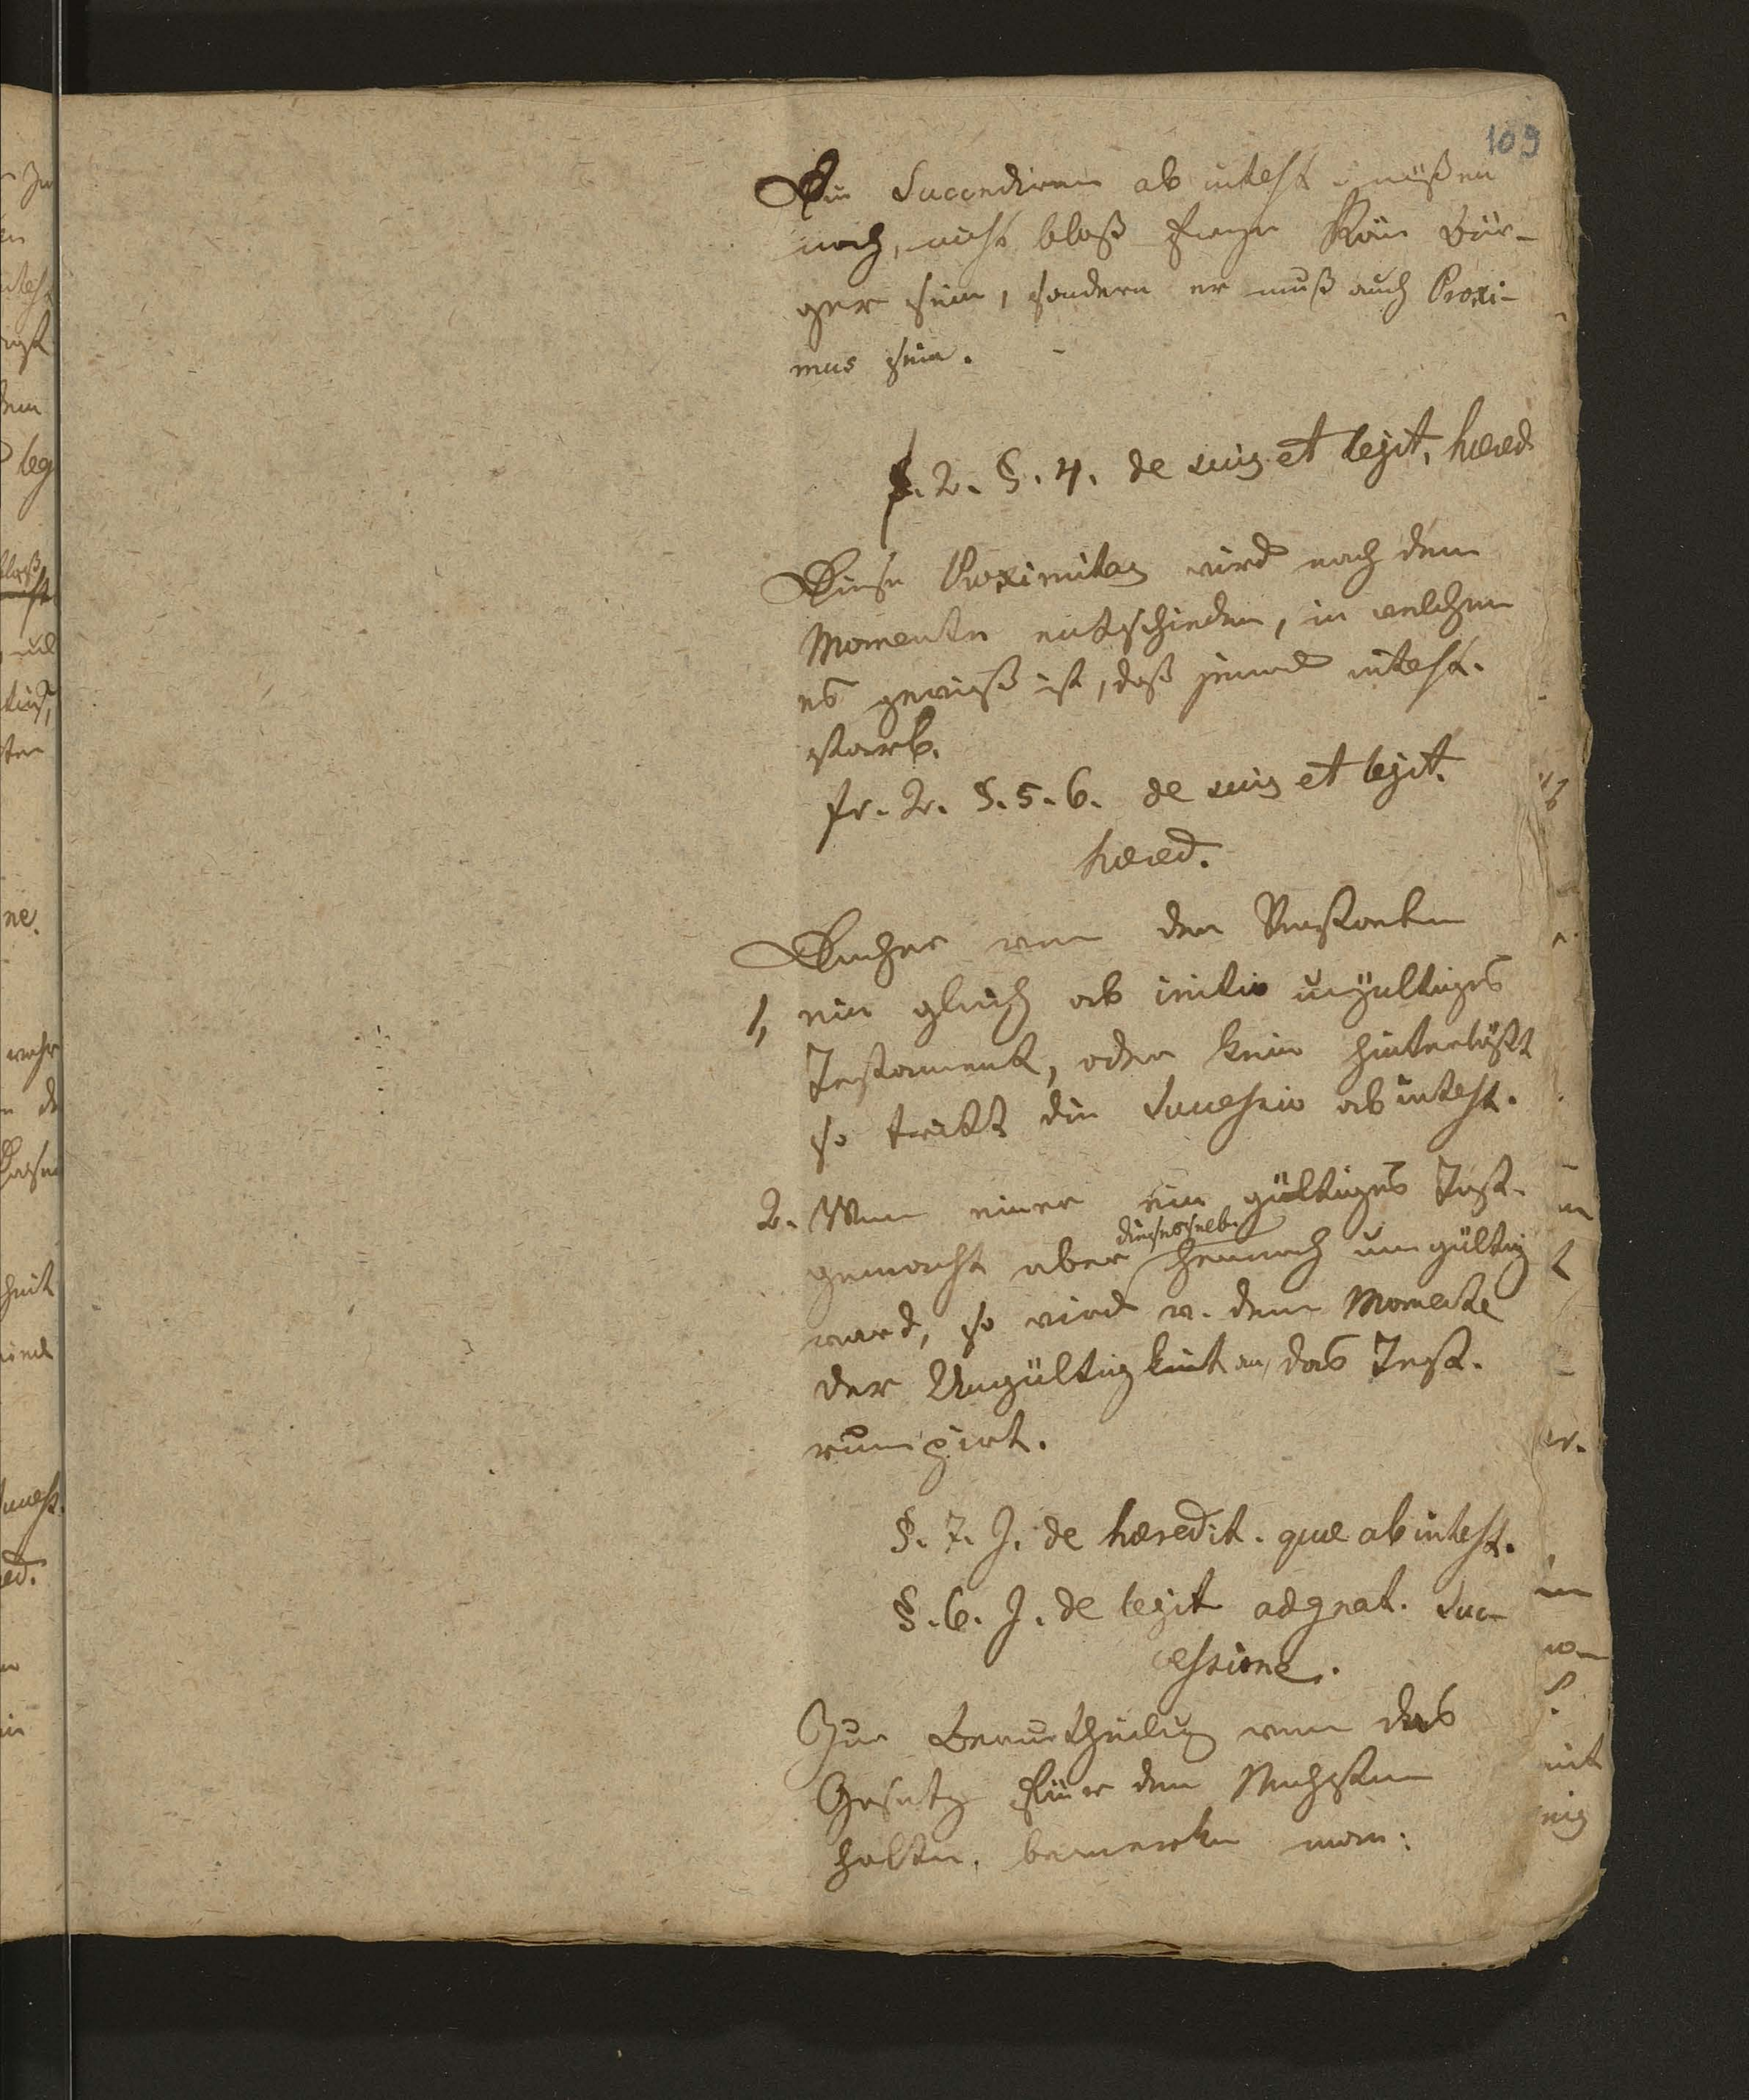 109
Die Succediren ab intest müßen
noch, nicht bloß freye Röm Bür-
ger sein, sondern er muß auch Proxi-
mus sein.
f. 2. §. 4. de suis et legit. hæred
Diese Proximitas wird nach dem
Momente entschieden, in welchem
es gewiß ist, daß jemand intest.
starb.
fr. 2. §. 5. 6. de suis et legit.
hæred.
Daher wenn der
1, ein gleich ab initio ungültiges
Testament, oder kein hinterläßt
so tritt die Successio ab intest.
2. Wenn einer ein gültiges Test.
dieses selbe
gemacht aber hernach ungültig
ward, so wird v. dem Momente
der Ungültigkeit an, das Test.
rumpirt.
§. 7. J. de hæredit. quæ ab intest.
§. 6. J. de legit adgnat. Suc-
cessione.
Zur Beurtheilung wen das
Gesetz für den Nächsten
halte, bemerke man: